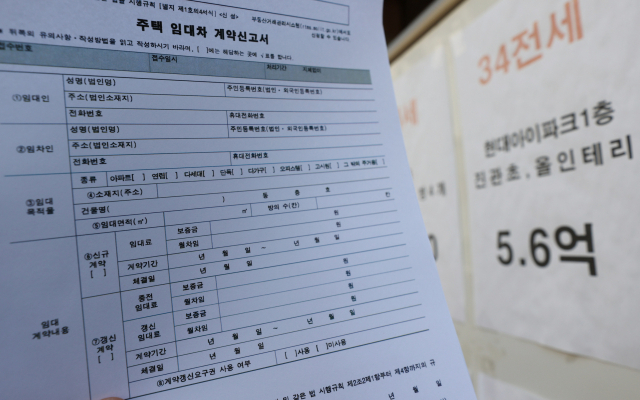 시행규칙 [별지 제1호의4서식] <신 설>
주택 임대차 계약신고서
※ 뒤쪽의 유의사항·작성방법을 읽고 작성하시기 바라며, [ ]에는 해당하는 곳에 √표를 합니다.
접수번호 접수일시 처리기간 지체없이
①임대인
성명(법인명) 주민등록번호(법인·외국인등록번호)
주소(법인소재지)
전화번호 휴대전화번호
②임차인
성명(법인명) 주민등록번호(법인·외국인등록번호)
주소(법인소재지)
전화번호 휴대전화번호
③임대 목적물
종류 아파트[ ] 연립[ ] 다세대[ ] 단독[ ] 다가구[ ] 오피스텔[ ] 고시원[ ] 그 밖의 주거용[ ]
④소재지(주소)
건물명( ) 동 층 호
⑤임대면적(㎡) ㎡ 방의 수(칸) 칸
임대 계약내용
⑥신규 계약 [ ]
임대료 보증금 원
월차임 원
계약기간 년 월 일 ~ 년 월 일
체결일 년 월 일
⑦갱신 계약 [ ]
종전 임대료 보증금 원
월차임 원
갱신 임대료 보증금 원
월차임 원
계약기간 년 월 일 ~ 년 월 일
체결일 년 월 일
⑧계약갱신요구권 사용 여부 [ ]사용 [ ]미사용
및 같은 법 시행규칙 제2조2제1항부터 제4항까지의 규
년 월 일
34전세
현대아이파크1층
진관초,올인테리
5.6억